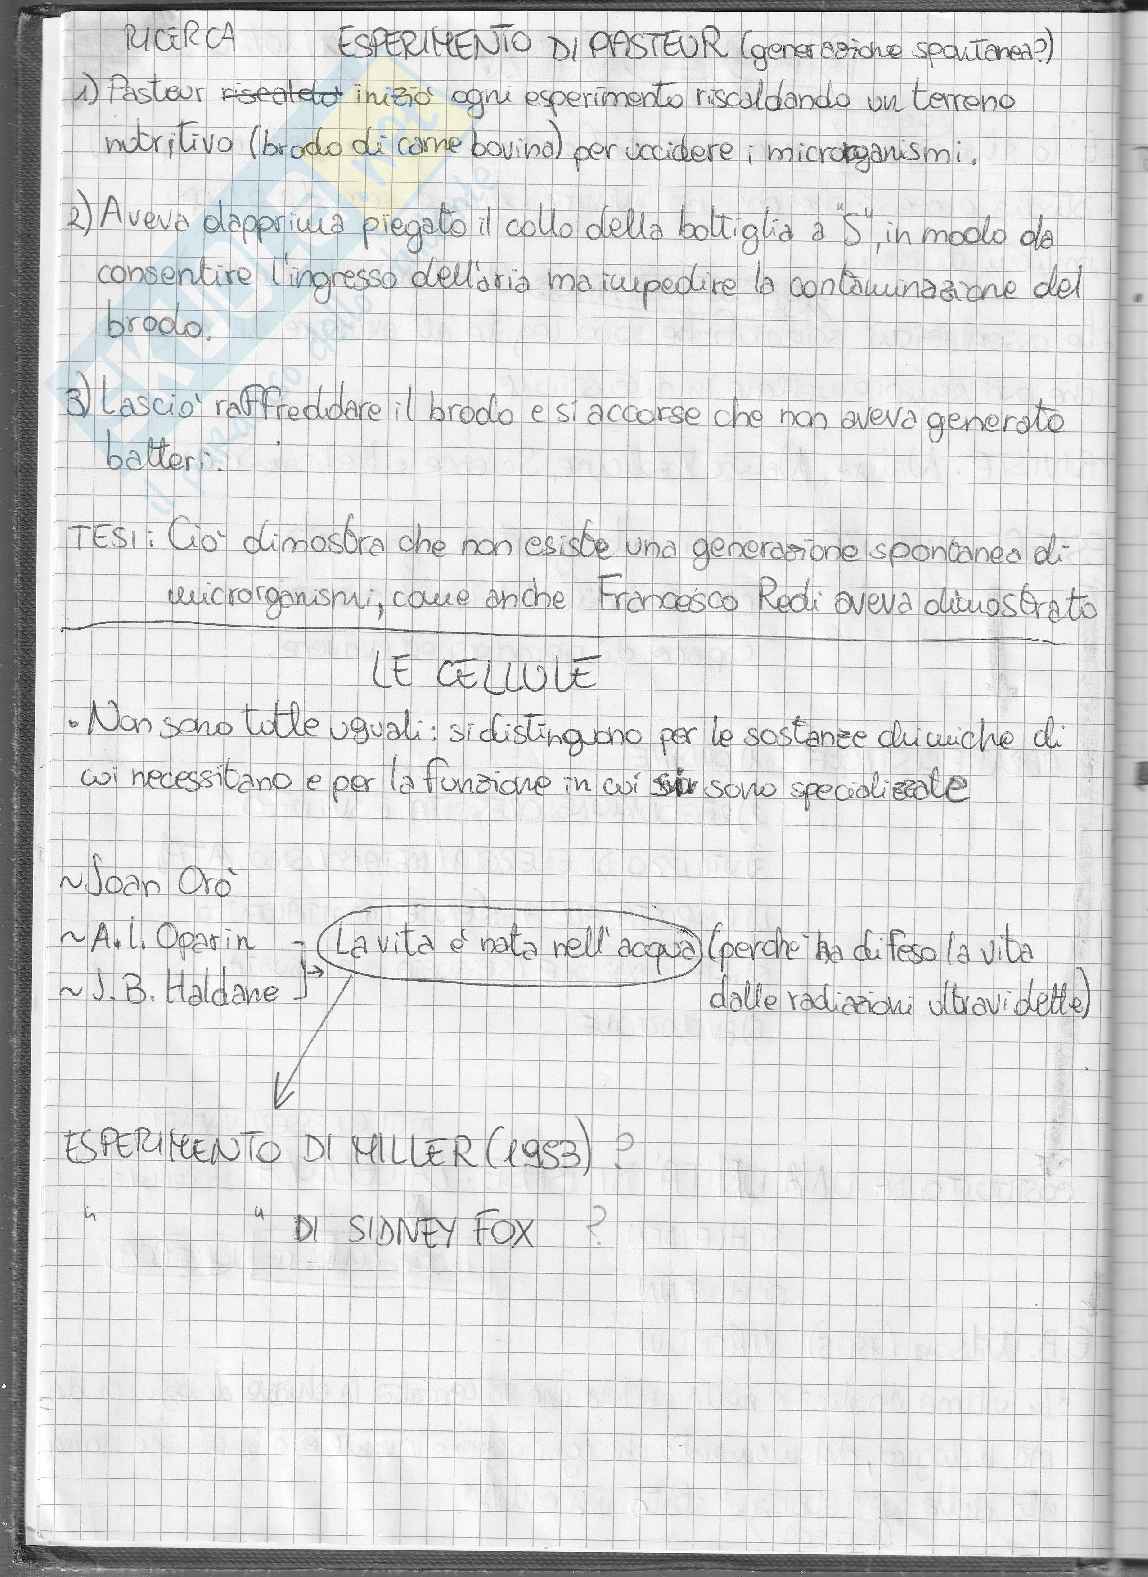 RICERCA ESPERIMENTO DI PASTEUR (generazione spontanea?)
1) Pasteur riscaldò iniziò ogni esperimento riscaldando un terreno
nutritivo (brodo di carne bovina) per uccidere i microrganismi.
2) Aveva dapprima piegato il collo della bottiglia a "S", in modo da
consentire l'ingresso dell'aria ma impedire la contaminazione del
brodo.
3) Lasciò raffreddare il brodo e si accorse che non aveva generato
batteri.
TESI: Ciò dimostra che non esiste una generazione spontanea di
microrganismi, come anche Francesco Redi aveva dimostrato
LE CELLULE
• Non sono tutte uguali: si distinguono per le sostanze chimiche di
cui necessitano e per la funzione in cui sono specializzate
~ Joan Orò
~ A. I. Oparin La vita è nata nell'acqua (perchè ha difeso la vita
~ J. B. Haldane dalle radiazioni ultraviolette)
ESPERIMENTO DI MILLER (1953) ?
" " DI SIDNEY FOX ?
SKUOLA.net